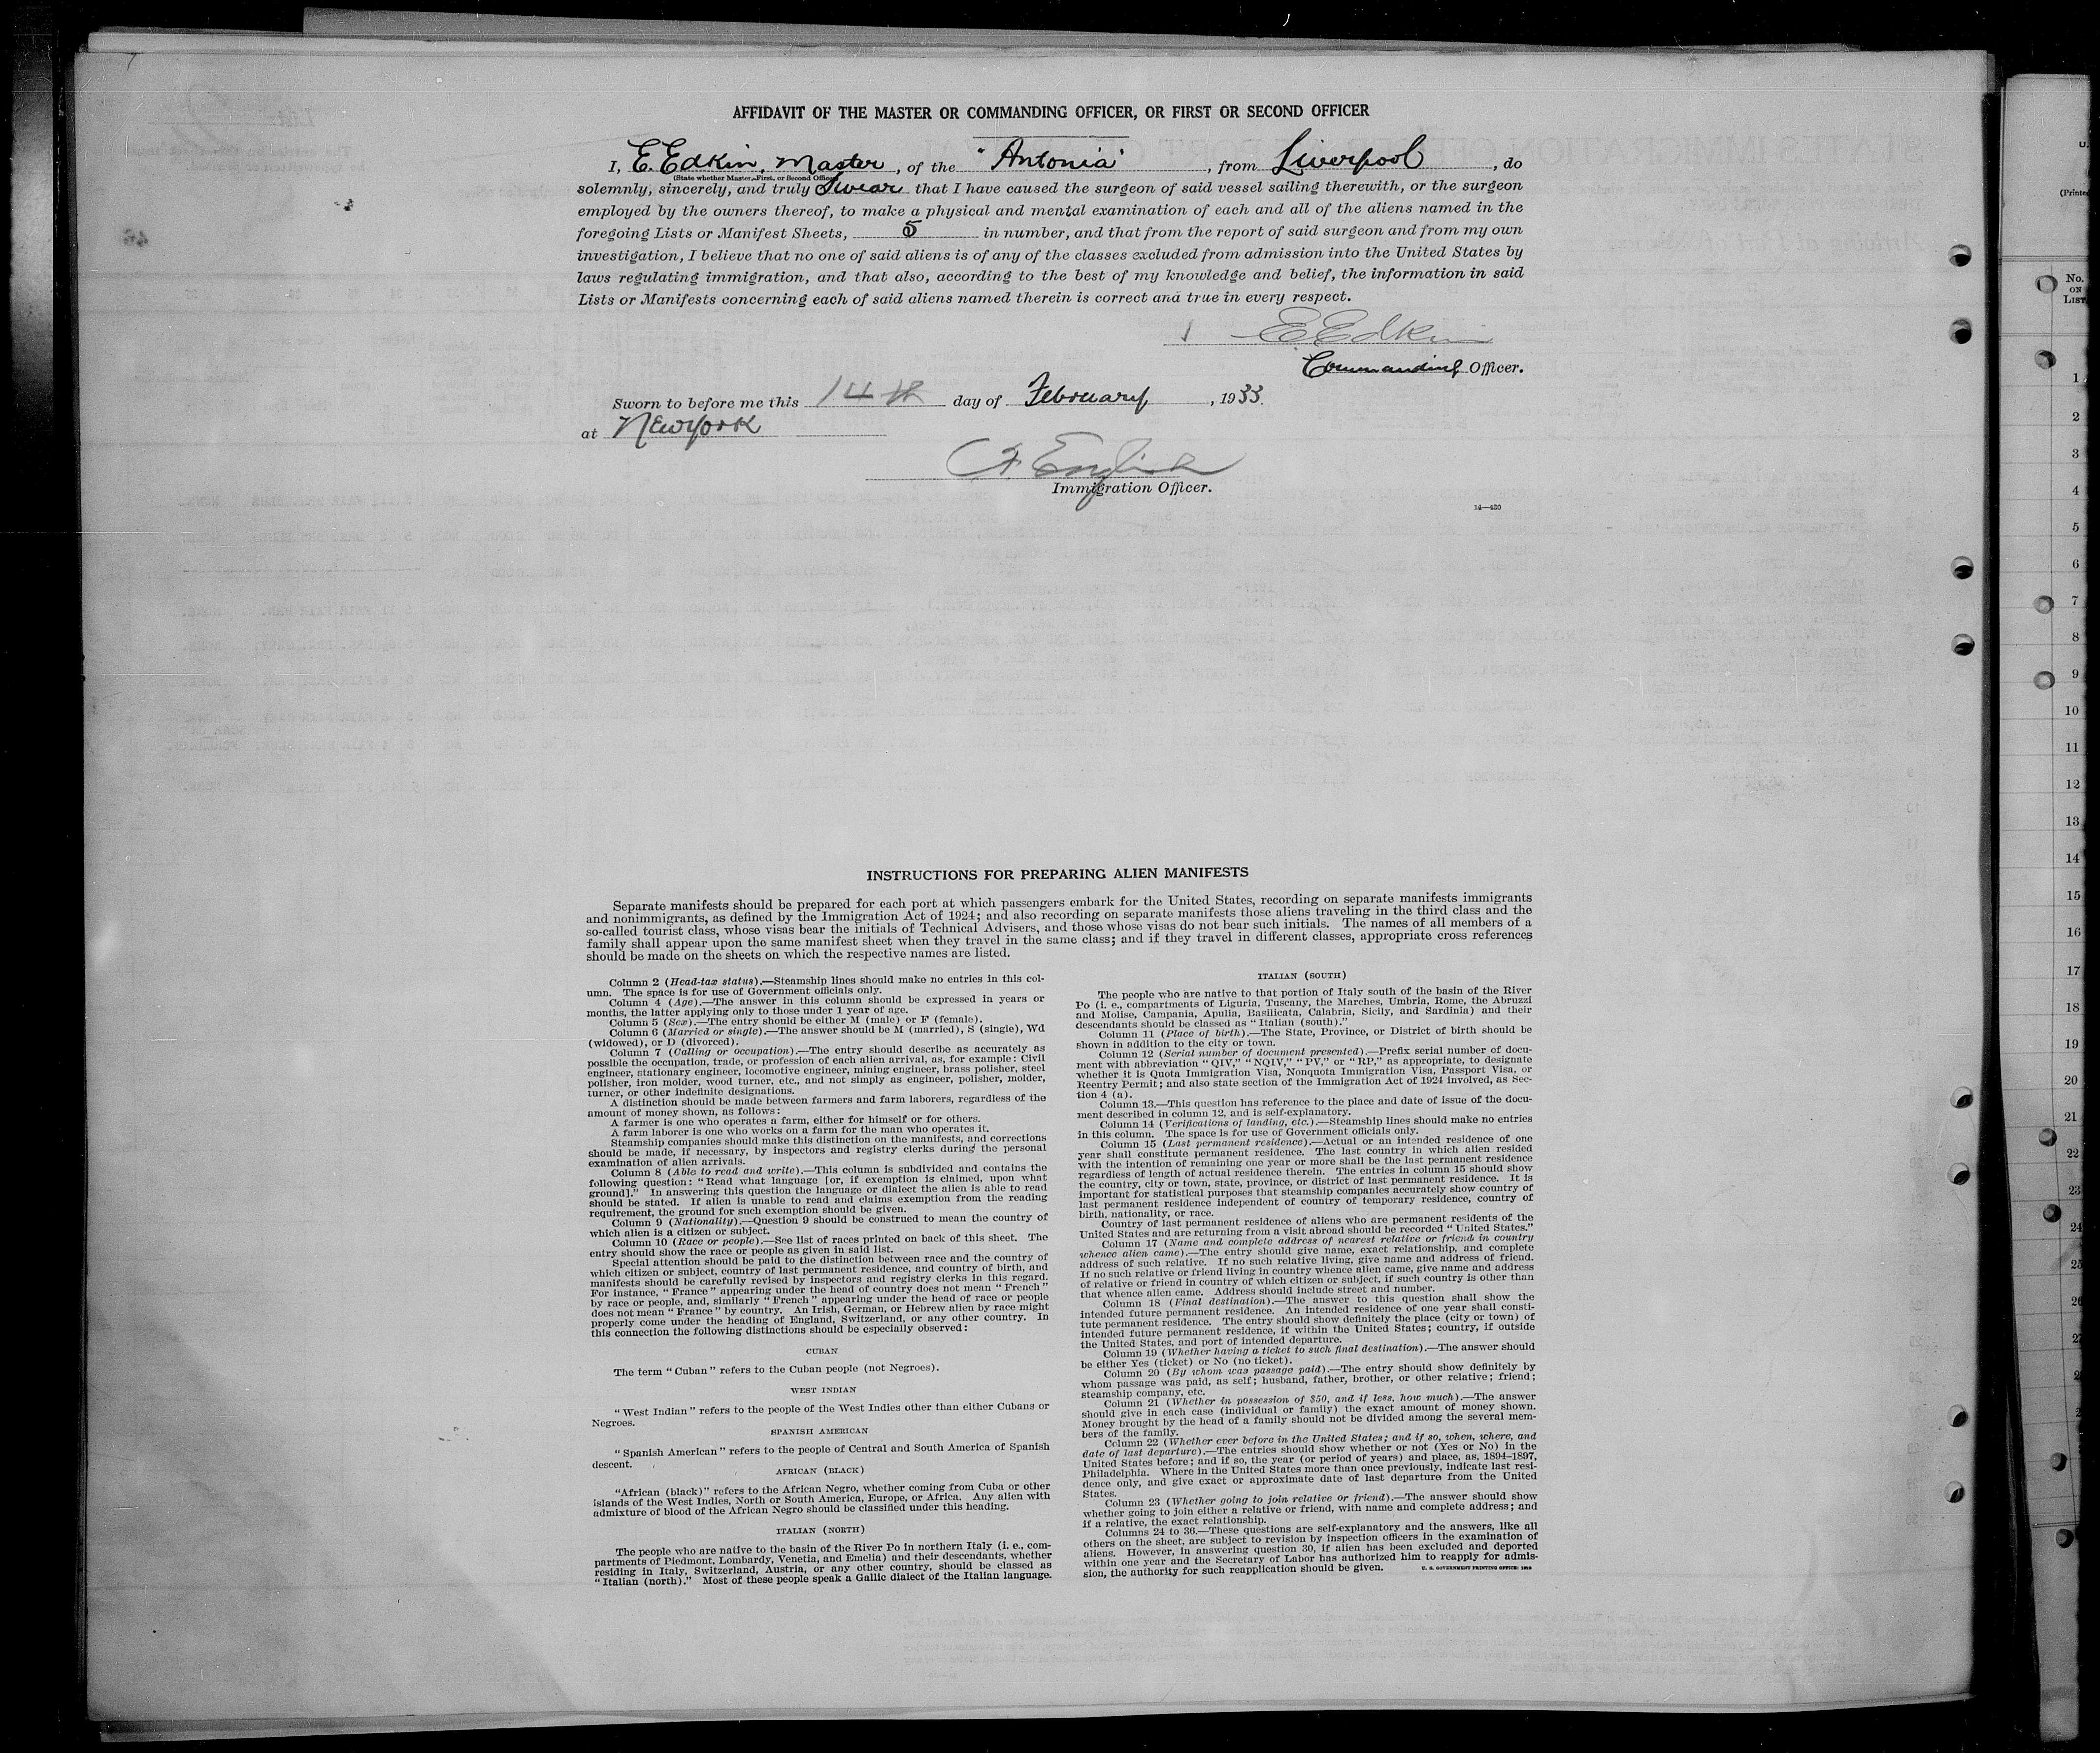 AFFIDAVIT OF THE MASTER OR COMMANDING OFFICER, OR FIRST OR SECOND OFFICER
I, E. Edkin, Master, of the "Antonia", from Liverpool, do
(State whether Master, First, or Second Officer)
solemnly, sincerely, and truly Swear that I have caused the surgeon of said vessel sailing therewith, or the surgeon
employed by the owners thereof, to make a physical and mental examination of each and all of the aliens named in the
foregoing Lists or Manifest Sheets, 5 in number, and that from the report of said surgeon and from my own
investigation, I believe that no one of said aliens is of any of the classes excluded from admission into the United States by
laws regulating immigration, and that also, according to the best of my knowledge and belief, the information in said
Lists or Manifests concerning each of said aliens named therein is correct and true in every respect.
E Edkin
Commanding Officer.
Sworn to before me this 14th day of February, 1933.
at New York
English
Immigration Officer.
14—430
INSTRUCTIONS FOR PREPARING ALIEN MANIFESTS
Separate manifests should be prepared for each port at which passengers embark for the United States, recording on separate manifests immigrants
and nonimmigrants, as defined by the Immigration Act of 1924; and also recording on separate manifests those aliens traveling in the third class and the
so-called tourist class, whose visas bear the initials of Technical Advisers, and those whose visas do not bear such initials. The names of all members of a
family shall appear upon the same manifest sheet when they travel in the same class; and if they travel in different classes, appropriate cross references
should be made on the sheets on which the respective names are listed.
Column 2 (Head-tax status).—Steamship lines should make no entries in this col-
umn. The space is for use of Government officials only.
Column 4 (Age).—The answer in this column should be expressed in years or
months, the latter applying only to those under 1 year of age.
Column 5 (Sex).—The entry should be either M (male) or F (female).
Column 6 (Married or single).—The answer should be M (married), S (single), Wd
(widowed), or D (divorced).
Column 7 (Calling or occupation).—The entry should describe as accurately as
possible the occupation, trade, or profession of each alien arrival, as, for example: Civil
engineer, stationary engineer, locomotive engineer, mining engineer, brass polisher, steel
polisher, iron molder, wood turner, etc., and not simply as engineer, polisher, molder,
turner, or other indefinite designations.
A distinction should be made between farmers and farm laborers, regardless of the
amount of money shown, as follows:
A farmer is one who operates a farm, either for himself or for others.
A farm laborer is one who works on a farm for the man who operates it.
Steamship companies should make this distinction on the manifests, and corrections
should be made, if necessary, by inspectors and registry clerks during the personal
examination of alien arrivals.
Column 8 (Able to read and write).—This column is subdivided and contains the
following question: "Read what language [or, if exemption is claimed, upon what
ground]." In answering this question the language or dialect the alien is able to read
should be stated. If alien is unable to read and claims exemption from the reading
requirement, the ground for such exemption should be given.
Column 9 (Nationality).—Question 9 should be construed to mean the country of
which alien is a citizen or subject.
Column 10 (Race or people).—See list of races printed on back of this sheet. The
entry should show the race or people as given in said list.
Special attention should be paid to the distinction between race and the country of
which citizen or subject, country of last permanent residence, and country of birth, and
manifests should be carefully revised by inspectors and registry clerks in this regard.
For instance, "France" appearing under the head of country does not mean "French"
by race or people, and, similarly "French" appearing under the head of race or people
does not mean "France" by country. An Irish, German, or Hebrew alien by race might
properly come under the heading of England, Switzerland, or any other country. In
this connection the following distinctions should be especially observed:
CUBAN
The term "Cuban" refers to the Cuban people (not Negroes).
WEST INDIAN
"West Indian" refers to the people of the West Indies other than either Cubans or
Negroes.
SPANISH AMERICAN
"Spanish American" refers to the people of Central and South America of Spanish
descent.
AFRICAN (BLACK)
"African (black)" refers to the African Negro, whether coming from Cuba or other
islands of the West Indies, North or South America, Europe, or Africa. Any alien with
admixture of blood of the African Negro should be classified under this heading.
ITALIAN (NORTH)
The people who are native to the basin of the River Po in northern Italy (i. e., com-
partments of Piedmont, Lombardy, Venetia, and Emelia) and their descendants, whether
residing in Italy, Switzerland, Austria, or any other country, should be classed as
"Italian (north)." Most of these people speak a Gallic dialect of the Italian language.
ITALIAN (SOUTH)
The people who are native to that portion of Italy south of the basin of the River
Po (i. e., compartments of Liguria, Tuscany, the Marches, Umbria, Rome, the Abruzzi
and Molise, Campania, Apulia, Basilicata, Calabria, Sicily, and Sardinia) and their
descendants should be classed as "Italian (south)."
Column 11 (Place of birth).—The State, Province, or District of birth should be
shown in addition to the city or town.
Column 12 (Serial number of document presented).—Prefix serial number of docu-
ment with abbreviation "QIV," "NQIV," "PV," or "RP," as appropriate, to designate
whether it is Quota Immigration Visa, Nonquota Immigration Visa, Passport Visa, or
Reentry Permit; and also state section of the Immigration Act of 1924 involved, as Sec-
tion 4 (a).
Column 13.—This question has reference to the place and date of issue of the docu-
ment described in column 12, and is self-explanatory.
Column 14 (Verifications of landing, etc.).—Steamship lines should make no entries
in this column. The space is for use of Government officials only.
Column 15 (Last permanent residence).—Actual or an intended residence of one
year shall constitute permanent residence. The last country in which alien resided
with the intention of remaining one year or more shall be the last permanent residence
regardless of length of actual residence therein. The entries in column 15 should show
the country, city or town, state, province, or district of last permanent residence. It is
important for statistical purposes that steamship companies accurately show country of
last permanent residence independent of country of temporary residence, country of
birth, nationality, or race.
Country of last permanent residence of aliens who are permanent residents of the
United States and are returning from a visit abroad should be recorded "United States."
Column 17 (Name and complete address of nearest relative or friend in country
whence alien came).—The entry should give name, exact relationship, and complete
address of such relative. If no such relative living, give name and address of friend.
If no such relative or friend living in country whence alien came, give name and address
of relative or friend in country of which citizen or subject, if such country is other than
that whence alien came. Address should include street and number.
Column 18 (Final destination).—The answer to this question shall show the
intended future permanent residence. An intended residence of one year shall consti-
tute permanent residence. The entry should show definitely the place (city or town) of
intended future permanent residence, if within the United States; country, if outside
the United States, and port of intended departure.
Column 19 (Whether having a ticket to such final destination).—The answer should
be either Yes (ticket) or No (no ticket).
Column 20 (By whom was passage paid).—The entry should show definitely by
whom passage was paid, as self; husband, father, brother, or other relative; friend;
steamship company, etc.
Column 21 (Whether in possession of $50, and if less, how much).—The answer
should give in each case (individual or family) the exact amount of money shown.
Money brought by the head of a family should not be divided among the several mem-
bers of the family.
Column 22 (Whether ever before in the United States; and if so, when, where, and
date of last departure).—The entries should show whether or not (Yes or No) in the
United States before; and if so, the year (or period of years) and place, as, 1894–1897,
Philadelphia. Where in the United States more than once previously, indicate last resi-
dence only, and give exact or approximate date of last departure from the United
States.
Column 23 (Whether going to join relative or friend).—The answer should show
whether going to join either a relative or friend, with name and complete address; and
if a relative, the exact relationship.
Columns 24 to 36.—These questions are self-explanatory and the answers, like all
others on the sheet, are subject to revision by inspection officers in the examination of
aliens. However, in answering question 30, if alien has been excluded and deported
within one year and the Secretary of Labor has authorized him to reapply for admis-
sion, the authority for such reapplication should be given.
U. S. GOVERNMENT PRINTING OFFICE
No.
ON
LIST
1
2
3
4
5
6
7
8
9
10
11
12
13
14
15
16
17
18
19
20
21
22
23
24
25
26
27